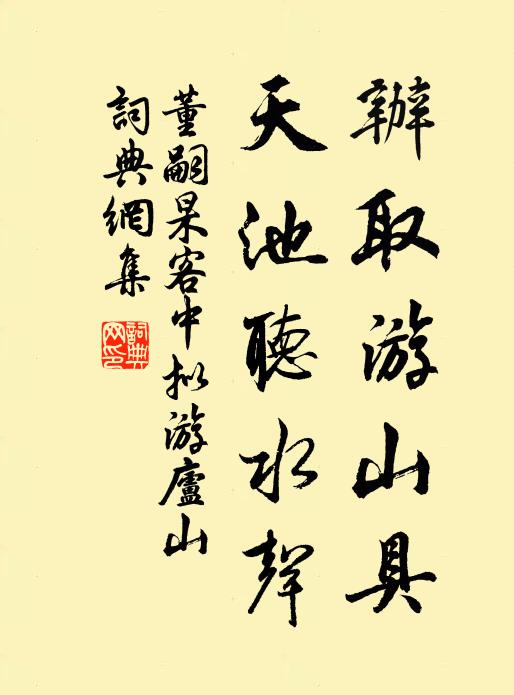 辦取游山具
天池聽水聲
董嗣杲客中拟游廬山
詞典網集
詞典
网印